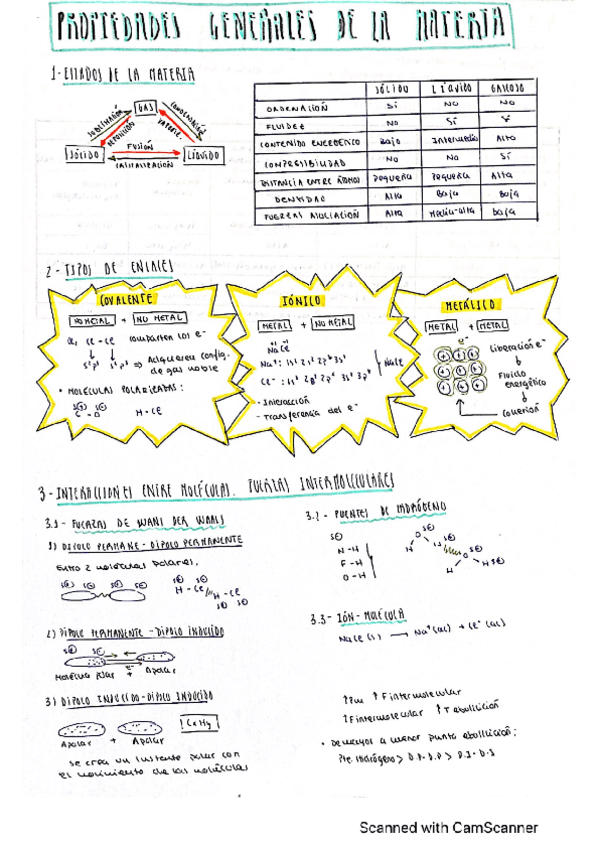 PROPIEDADES GENERALES DE LA MATERIA
1- ESTADOS DE LA MATERIA
GAS
SÓLIDO
FUSIÓN
LÍQUIDO
SÓLIDO LÍQUIDO GASEOSO
ORDENACIÓN SÍ NO NO
FLUIDEZ NO SÍ
CONTENIDO ENERGÉTICO Bajo Intermedio Alto
COMPRESIBILIDAD NO NO SÍ
DISTANCIA ENTRE ÁTOMOS Pequeña Pequeña Alta
DENSIDAD Alta Baja Baja
FUERZAS Alta Media-alta Baja
2- TIPOS DE ENLACES
COVALENTE
NO METAL + NO METAL
comparten los e⁻
Adquieren config. de gas noble
• MOLÉCULAS POLARIZADAS:
IÓNICO
METAL + NO METAL
- Interacción
- Transferencia del e⁻
METÁLICO
METAL + METAL
e⁻
Liberación e⁻
Fluido
energético
Cohesión
3- INTERACCIONES ENTRE MOLÉCULAS. FUERZAS INTERMOLECULARES
3.1- FUERZAS DE WANS DER WAALS
1) DIPOLO PERMANE - DIPOLO PERMANENTE
Entre 2 moléculas polares.
2) DIPOLO PERMANENTE - DIPOLO INDUCIDO
Molécula polar + Apolar
3) DIPOLO INDUCIDO - DIPOLO INDUCIDO
Apolar + Apolar
se crea un instante polar con
el movimiento de las moléculas
3.2- PUENTES DE HIDRÓGENO
N-H
F-H
O-H
3.3- IÓN-MOLÉCULA
↑Pm ↑Fintermolecular
↑Fintermolecular ↑T ebullición
• De mayor a menor punto ebullición:
Pte. Hidrógeno > D.P-D.P > D.I-D.I
Scanned with CamScanner